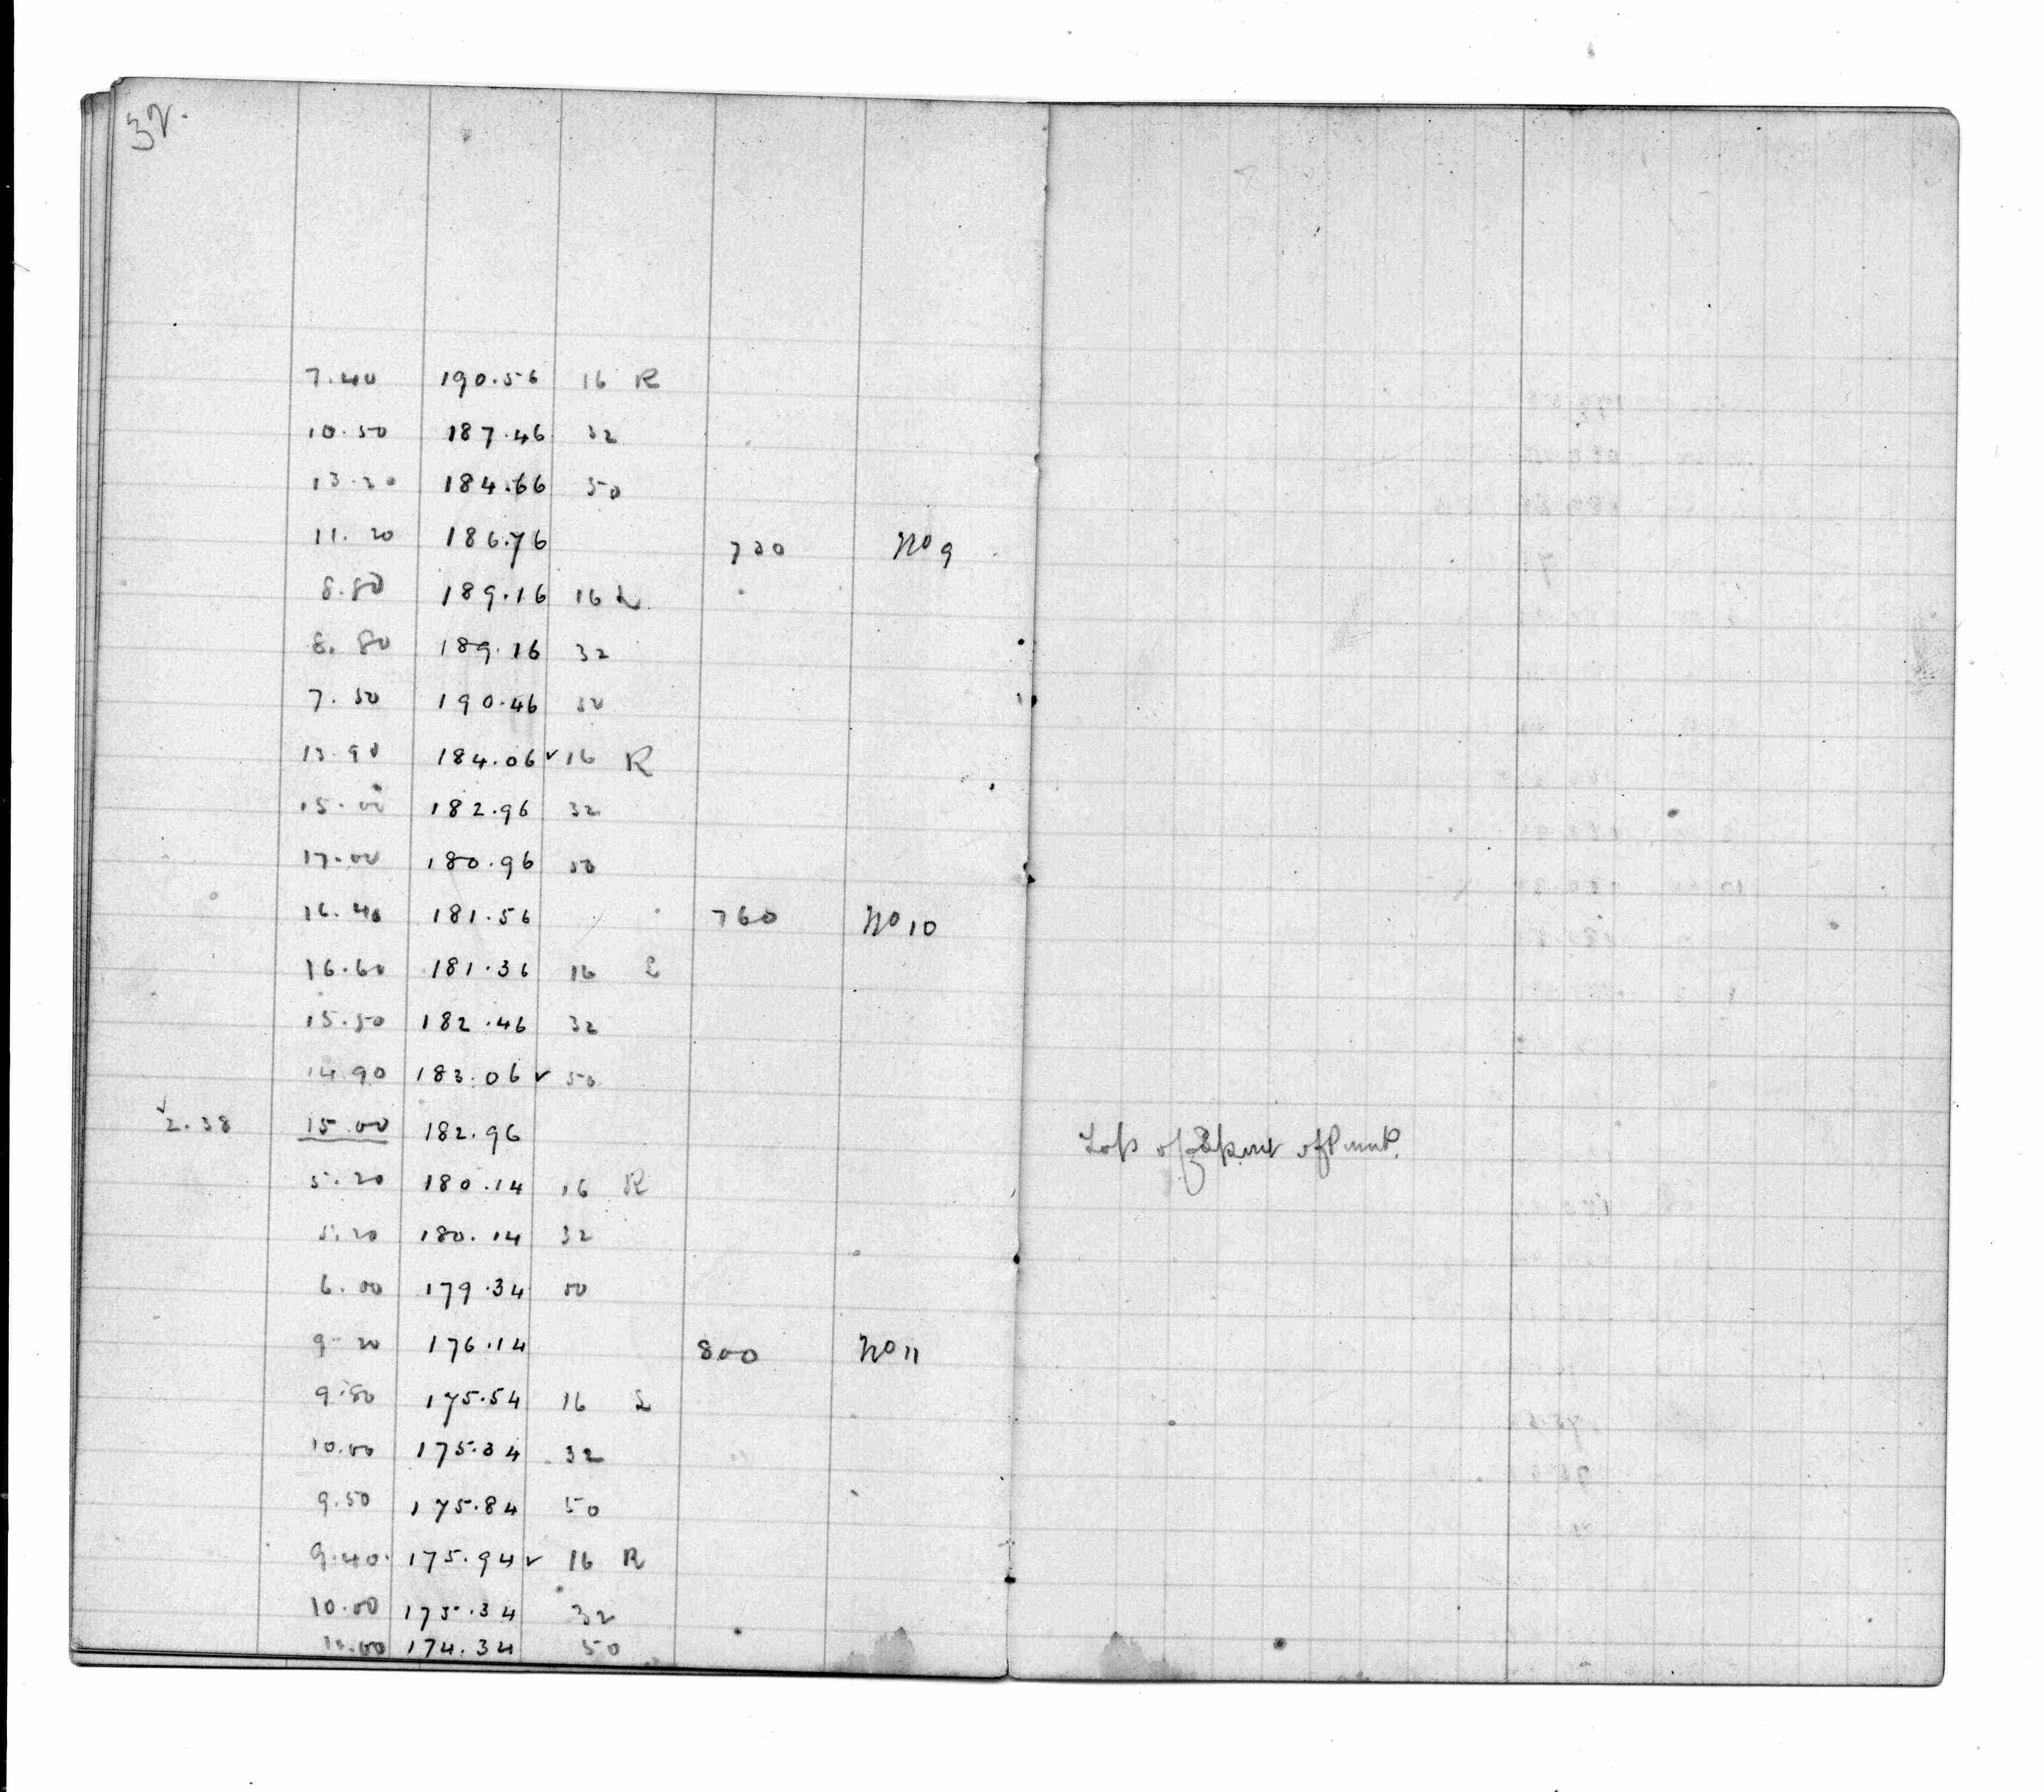 32.
7.40 190.56 16 R
10.50 187.46 32
13.30 184.66 50
11.20 186.76 720 No 9
8.80 189.16 16 L
8.80 189.16 32
7.50 190.46 50
13.90 184.06 ✓ 16 R
15.00 182.96 32
17.00 180.96 50
16.40 181.56 760 No 10
16.60 181.36 16 L
15.50 182.46 32
14.90 183.06 ✓ 50
✓2.38 15.00 182.96 Top of
5.20 180.14 16 R
5.20 180.14 32
6.00 179.34 50
9.20 176.14 800 No 11
9.80 175.54 16 L
10.00 175.34 32
9.50 175.84 50
9.40 175.94 ✓ 16 R
10.00 175.34 32
11.00 174.34 50